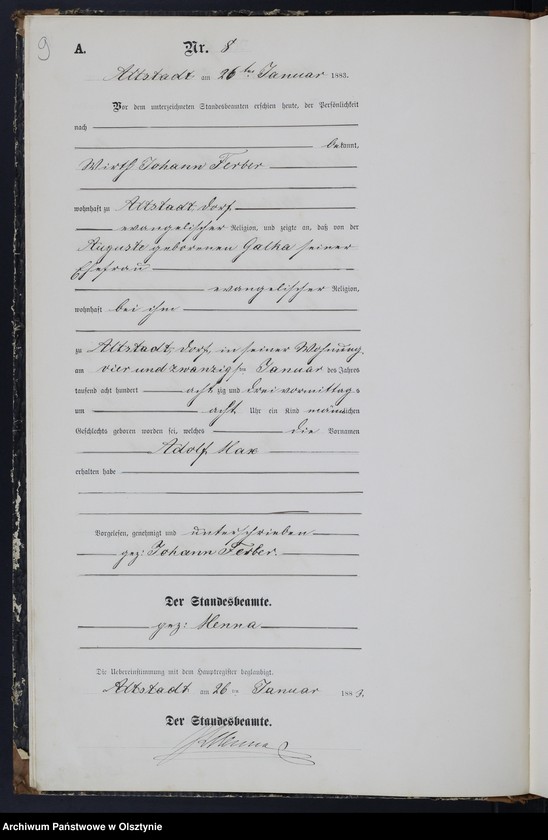 9
A. Nr. 8
Altstadt am 26ten Januar 1883.
Vor dem unterzeichneten Standesbeamten erschien heute, der Persönlichkeit
nach
bekannt,
Wirth Johann Ferber
wohnhaft zu Altstadt Dorf
evangelischer Religion, und zeigte an, daß von der
Auguste geborenen Galka seiner
Ehefrau
evangelischer Religion,
wohnhaft bei ihm
zu Altstadt, Dorf, in seiner Wohnung
am vier und zwanzigsten Januar des Jahres
tausend acht hundert achtzig und drei vormittags
um acht Uhr ein Kind männlichen
Geschlechts geboren worden sei, welches die Vornamen
Adolf Max
erhalten habe
Vorgelesen, genehmigt und unterschrieben
gez: Johann Ferber.
Der Standesbeamte.
gez: Menna
Die Uebereinstimmung mit dem Hauptregister beglaubigt.
Altstadt am 26ten Januar 1883.
Der Standesbeamte.
Menna
Archiwum Państwowe w Olsztynie